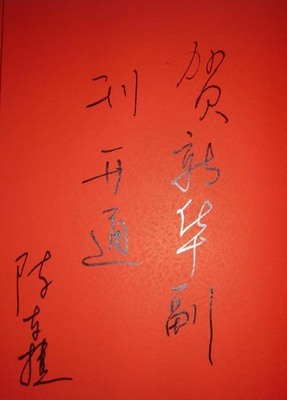 贺新华副
刊开通
陈东捷